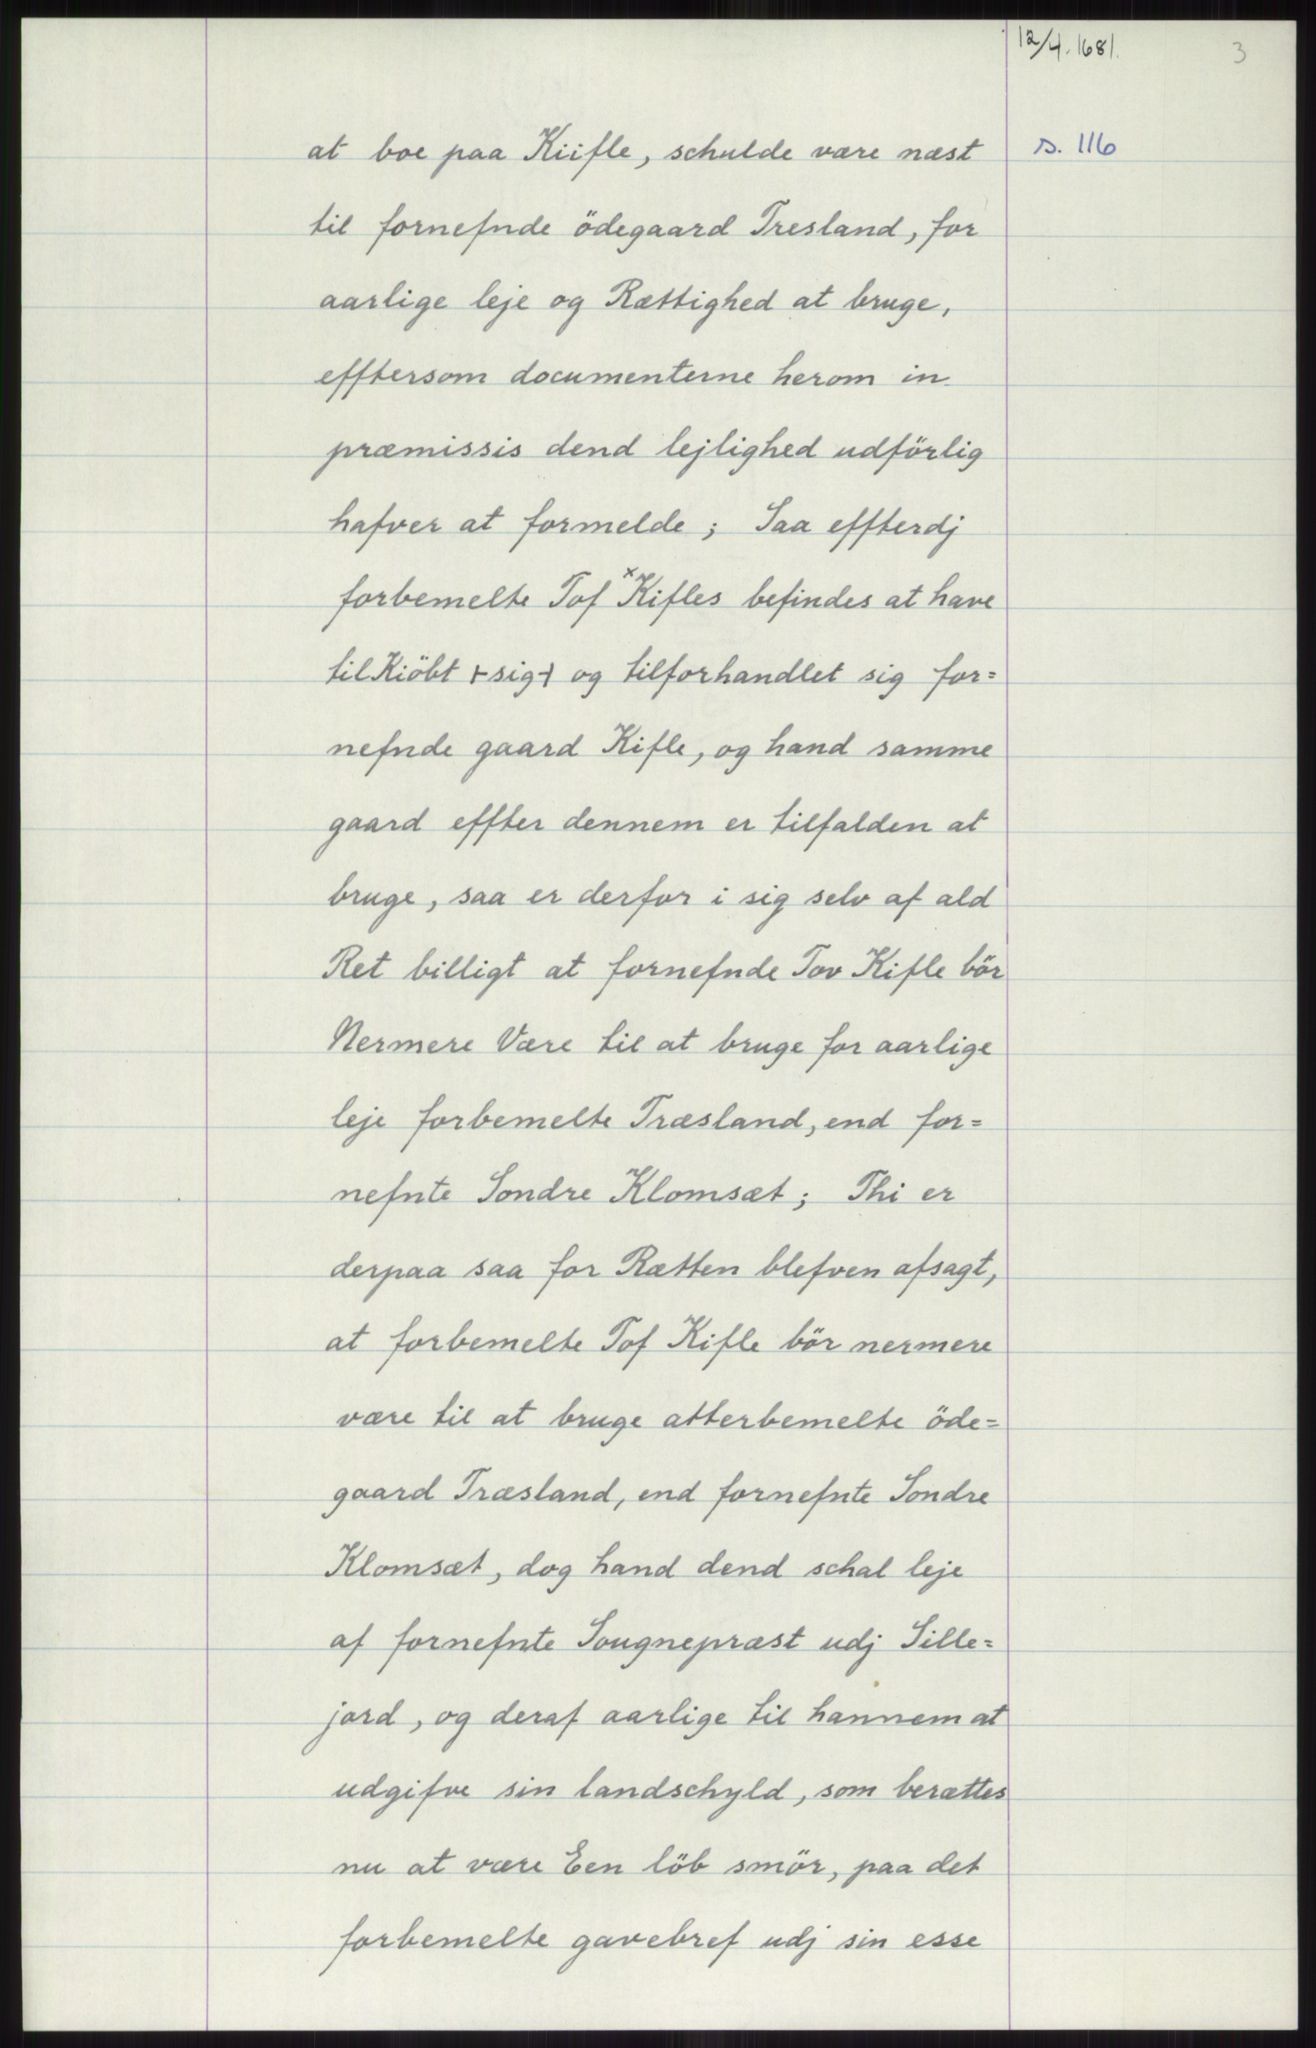 12/4. 1681.
3
s. 116
at boe paa Kiifle, schulde være næst
til fornefnde ödegaard Tresland, for
aarlige leje og Rættighed at bruge,
efftersom documenterne herom in
præmissis dend lejlighed udförlig
hafver at formelde; Saa effterdj
forbemelte Tof x Kifles befindes at have
til Kiöbt +sig+ og tilforhandlet sig for=
nefnde gaard Kifle, og hand samme
gaard effter dennem er tilfalden at
bruge, saa er derfor i sig selv af ald
Ret billigt at fornefnde Tov Kifle bör
Nermere Være til at bruge for aarlige
leje forbemelte Træsland, end for=
nefnte Sondre Klomsæt; Thi er
derpaa saa for Rætten blefven afsagt,
at forbemelte Tof Kifle bör nermere
være til at bruge atterbemelte öde=
gaard Træsland, end fornefnte Sondre
Klomsæt, dog hand dend schal leje
af fornefnte Sougnepræst udj Sille=
jord, og deraf aarlige til hannem at
udgifve sin landschyld, som berættes
nu at være Een löb smör, paa det
forbemelte gavebref udj sin esse